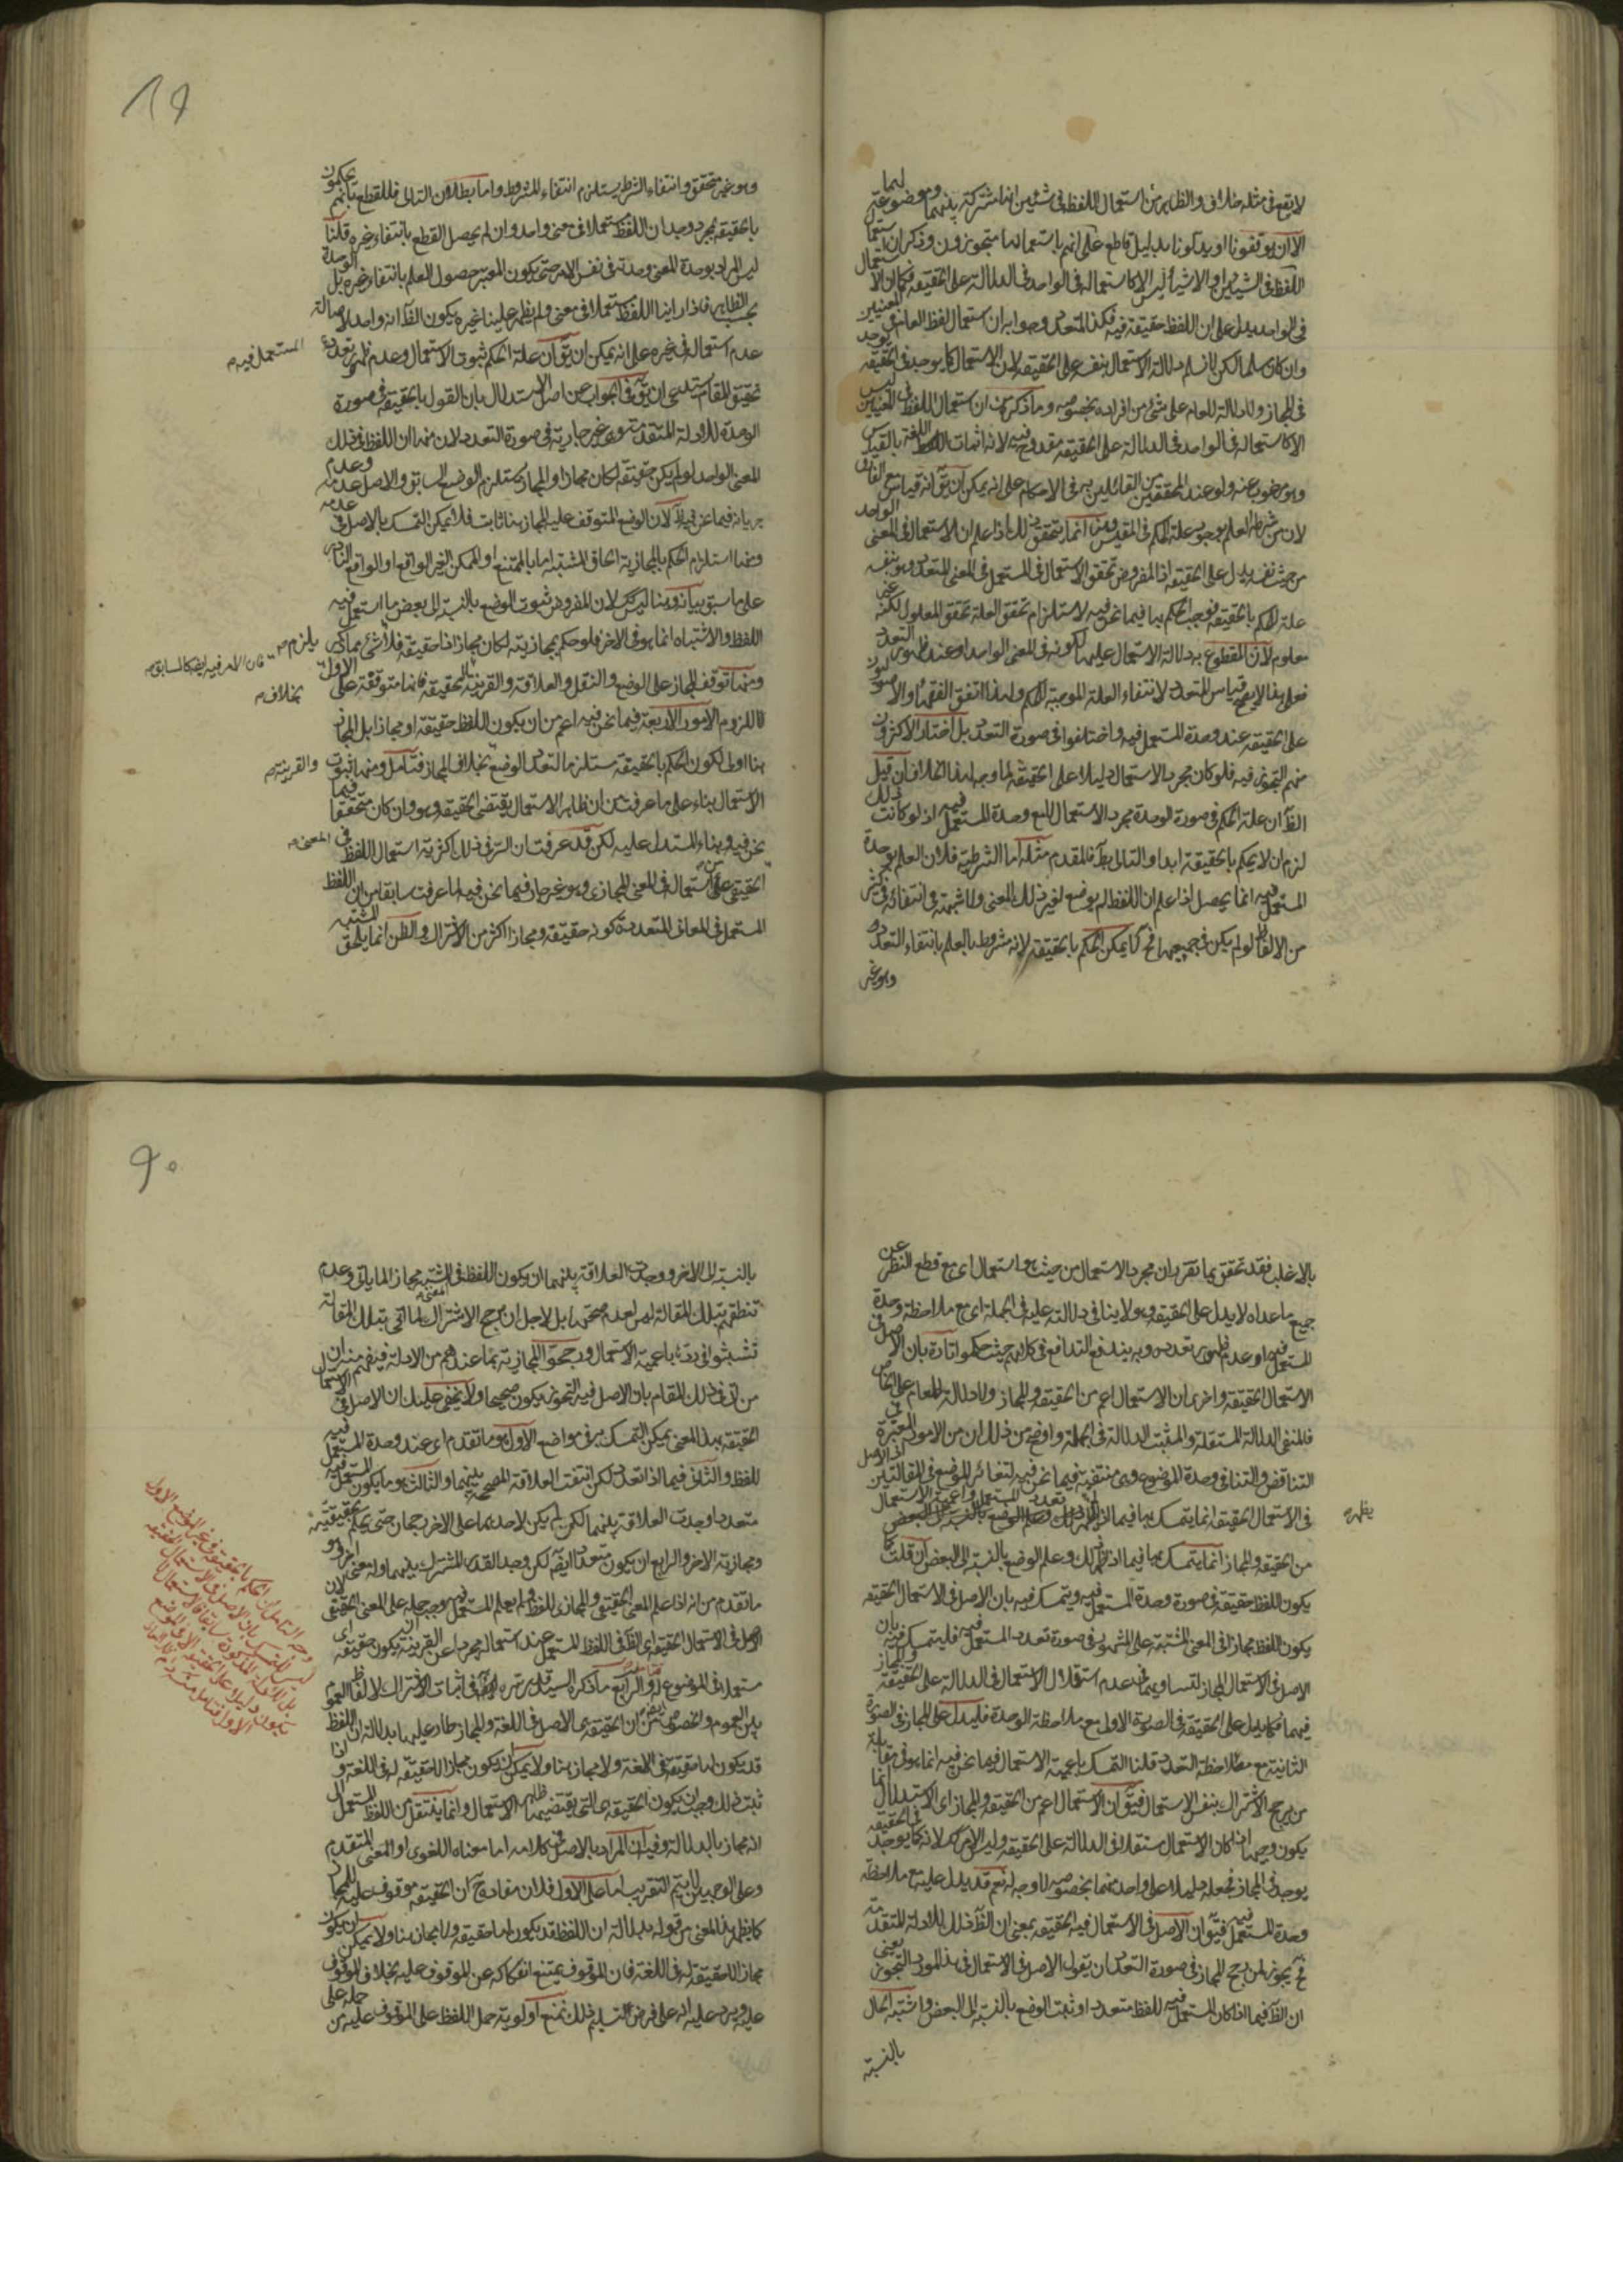 لا يقع في مثله خلاف والظاهر من استعمال اللفظ في شيئين انها مشتركة بينهما وموضوعة لهما
الا ان يوقفونا او يدلونا بدليل قاطع على انهم باستعمالها متجوزون وذكر ان استعمال
اللفظ في الشيئين او الاشياء ليس الا كاستعماله في الواحد في الدلالة على الحقيقة فكما ان الا
في الواحد يدل على ان اللفظ حقيقة فيه فكذا المتعدد وجوابه ان استعمال لفظ العام في المعنيين
وان كان مسلما لكن لا نسلم دلالة الاستعمال بنفسه على الحقيقة لان الاستعمال كما يوجد في الحقيقة يوجد
في المجاز ولا دلالة للعام على شئ من افراده بخصوصه وما ذكره من ان استعمال اللفظ في المعنيين ليس
الا كاستعماله في الواحد في الدلالة على الحقيقة مقدوح فيه لانه اثبات اللغة بالقياس
وهو مرغوب عنه ولو عند المحققين من القائلين به في الاحكام على انه يمكن ان يق انه قياس مع الفارق
لان من شرطه العلم بوجود علة الحكم في المقيس وهنا انما يتحقق ذلك اذا علم ان الاستعمال في المعنى الواحد
من حيث نفسه يدل على الحقيقة اذ المفروض تحقق الاستعمال في المستعمل في المعنى المتعدد وهو بنفسه
علة للحكم بالحقيقة فوجب الحكم بها فيما نحن فيه لاستلزام تحقق العلة تحقق المعلول لكنه غير
معلوم لان المقطوع به دلالة الاستعمال عليها لكونه في المعنى الواحد او عند ظهور التعدد
فعلى هذا لا يصح قياس المتعدد لانتفاء العلة الموجبة للحكم ولهذا اتفق الفقهاء والاصوليون
على الحقيقة عند وحدة المستعمل فيه واختلفوا في صورة التعدد بل اختار الاكثرون
منهم التجوز فيه فلو كان مجرد الاستعمال دليلا على الحقيقة لما وجه لهذا الخلاف ان قيل
الظ ان علة الحكم في صورة الوحدة مجرد الاستعمال لا مع وحدة المستعمل فيه اذ لو كانت ذلك
لزم ان لا يحكم بالحقيقة ابدا والتالي بط فالمقدم مثله اما الشرطية فلان العلم بوحدة
المستعمل فيه انما يحصل اذا علم ان اللفظ لم يوضع لغير ذلك المعنى ولا شبهة في انتفائه في كثير
من الالفاظ لو لم يكن في جميعها فح لا يمكن الحكم بالحقيقة لانه مشروط بالعلم بانتفاء التعدد
وهو غير
١٩
وهو غير متحقق وانتفاء الشرط يستلزم انتفاء المشروط واما بطلان التالي فللقطع بانهم يحكمون
بالحقيقة بمجرد وجدان اللفظ مستعملا في معنى واحد وان لم يحصل القطع بانتفاء غيره قلنا
ليس المراد بوحدة المعنى وحدته في نفس الامر حتى يكون المعتبر حصول العلم بانتفاء غيره بل الوحدة
بحسب الظاهر فاذا راينا اللفظ مستعملا في معنى ولم يظهر علينا غيره يكون الظ انه واحد لاصالة
عدم استعماله في غيره على انه يمكن ان يق ان علة الحكم ثبوت الاستعمال وعدم ظهور تعدد
المستعمل فيه
تحقيق المقام يستدعي ان يق في الجواب عن اصل الاستدلال بان القول بالحقيقة في صورة
الوحدة للادلة المتقدمة وهي غير جارية في صورة التعدد لان منها ان اللفظ في ذلك
المعنى الواحد لو لم يكن حقيقة لكان مجازا والمجاز يستلزم الوضع السابق والاصل عدمه وعدم
جريانه فيما نحن فيه لان الوضع المتوقف عليه المجاز هنا ثابت فلا يمكن التمسك بالاصل في عدمه
ومنها استلزام الحكم بالمجازية الحاق المشتبه اما بالممتنع او الممكن الغير الواقع او الواقع النادر
على ما سبق بيانه وهنا ليس كك لان المفروض ثبوت الوضع بالنسبة الى بعض ما استعمل فيه
اللفظ والاشتباه انما هو في الاخر فلو حكم بمجازيته لكان مجازا ذا حقيقة فلا شئ مما ذكر يلزم
فان الامر فيه ليس كالسابق
ومنها توقف المجاز على الوضع والنقل والعلاقة والقرينة والحقيقة فانها متوقفة على الاول
بخلاف
فاللزوم الامور الاربعة فيما نحن فيه اعم من ان يكون اللفظ حقيقة او مجازا بل المجاز
هنا اولى لكون الحكم بالحقيقة مستلزما لتعدد الوضع بخلاف المجاز فتامل ومنها ثبوت
والقرينة
الاستعمال بناء على ما عرفت من ان ظاهر الاستعمال يقتضى الحقيقة وهو وان كان متحققا فيما
نحن فيه وبناء المستدل عليه لكن قد عرفت ان السر في ذلك اكثرية استعمال اللفظ في المعنى
الحقيقي على استعماله في المعنى المجازي وهو غير جار فيما نحن فيه لما عرفت سابقا من ان اللفظ
المستعمل في المعاني المتعددة كونه حقيقة ومجازا اكثر من الاشتراك والظن انما يلحق المشتبه
بالاغلب فقد تحقق بما تقرر ان مجرد الاستعمال من حيث هو استعمال اى مع قطع النظر عن
جميع ما عداه لا يدل على الحقيقة وهو لا ينافي دلالته عليه في الجملة اى مع ملاحظة وحدة
المستعمل فيه او عدم ظهور تعدده وبه يندفع التدافع في كلامهم حيث حكموا تارة بان الاصل في
الاستعمال الحقيقة واخرى ان الاستعمال اعم من الحقيقة والمجاز ولا دلالة للعام على الخاص
فالمنفي الدلالة المستقلة والمثبت الدلالة في الجملة واوضح من ذلك ان من الامور المعتبرة في
التناقض والتنافي وحدة الموضوع وهي منتفية فيما نحن فيه لتغاير الموضع في المقالتين اذ الاصل
في الاستعمال الحقيقة انما يتمسك بها فيما اذا
يظهر
من الحقيقة والمجاز انما يتمسك بها فيما اذا ظهر ذلك وعلم الوضع بالنسبة الى البعض ان قلت كما
يكون اللفظ حقيقة في صورة وحدة المستعمل فيه ويتمسك فيه بان الاصل في الاستعمال الحقيقة
يكون اللفظ مجازا في المعنى المشتبه على المشهور في صورة تعدد المستعمل فيه فليتمسك فيه بان
الاصل في الاستعمال المجاز لتساويهما في عدم استقلال الاستعمال في الدلالة على الحقيقة والمجاز
فيهما فكما يدل على الحقيقة في الصورة الاولى مع ملاحظة الوحدة فليدل على المجاز في الصورة
الثانية مع ملاحظة التعدد قلنا التمسك باعمية الاستعمال فيما نحن فيه انما هو في مقابلة
من يرجح الاشتراك بنفس الاستعمال فيق ان الاستعمال اعم من الحقيقة والمجاز اى الاستدلال انما
يكون وجيها اذا كان الاستعمال مستقلا في الدلالة على الحقيقة وليس الامر كك لانه كما يوجد في الحقيقة
يوجد في المجاز فجعله دليلا على واحد منهما بخصوصه لا وجه له نعم قد يدل عليه مع ملاحظة
وحدة المستعمل فيه فيق ان الاصل في الاستعمال فيه الحقيقة بمعنى ان الظ ذلك للادلة المتقدمة
فح يجوز لمن يرجح المجاز في صورة التعدد ان يقول الاصل في الاستعمال في هذا المورد التجوز يعني
ان الظ فيما اذا كان المستعمل فيه للفظ متعددا وثبت الوضع بالنسبة الى البعض واشتبه الحال
بالنسبة
٩٠
بالنسبة الى الاخر ووجدت العلاقة بينهما ان يكون اللفظ في المعنى المشتبه مجازا لما ياتي وعدم
تنطقهم بتلك المقالة ليس لعدم صحتها بل لاجل ان من رجح الاشتراك لما اتى بتلك المقالة
تشبثوا في رده باعمية الاستعمال ورجحوا المجازية بما عندهم من الادلة فيفهم منه ان
من اتى في ذلك المقام بان الاصل فيه التجوز يكون صحيحا ولا يخفى عليك ان الاصل في الاستعمال
الحقيقة بهذا المعنى يمكن التمسك به في مواضع الاول هو ما تقدم اى عند وحدة المستعمل فيه
للفظ والثاني فيما اذا تعدد لكن انتفت العلاقة المصححة بينهما والثالث هو ما يكون المستعمل فيه
متعددا وجدت العلاقة بينهما لكن لم يكن لاحدهما على الاخر رجحان حتى يحكم بحقيقية
ومجازية الاخر والرابع ان يكون متعددا ايضا لكن وجد القدر المشترك بينهما وله معنى اخر وهو
ما تقدم من انه اذا علم المعنى الحقيقي والمجازي للفظ ولم يعلم المستعمل فيه وجب حمله على المعنى الحقيقي لان
الاصل في الاستعمال الحقيقة اى الظ في اللفظ المستعمل عند استعماله مجردا عن القرينة ان يكون حقيقة اى
مستعملا في الموضوع له والرابع ما ذكره السيد قدس سره ايضا في اثبات الاشتراك لالفاظ العموم
بين العموم والخصوص من ان الحقيقة هي الاصل في اللغة والمجاز طار عليها بدلالة ان اللفظ
قد يكون لها حقيقة في اللغة ولا مجاز هنا ولا يمكن ان يكون مجاز لا حقيقة له في اللغة واذا
ثبت ذلك وجب ان يكون الحقيقة هي التي يقتضيها ظاهر الاستعمال وانما ينتقل من اللفظ المستعمل الى
انه مجاز بالدلالة وفيه ان المراد بالاصل في كلامه اما معناه اللغوي او المعنى المتقدم
وعلى الوجهين لا يتم التقريب اما على الاول فلان مفاده ح ان الحقيقة موقوف عليه للمجاز
كما يظهر هذا المعنى من قوله بدلالة ان اللفظ قد يكون لها حقيقة ولا مجاز هنا ولا يمكن ان يكون
مجاز لا حقيقة له في اللغة فان الموقوف يمتنع انفكاكه عن الموقوف عليه بخلاف الموقوف
عليه ويرد عليه انه على فرض التسليم ذلك نمنع اولوية حمل اللفظ على الموقوف عليه من حمله على